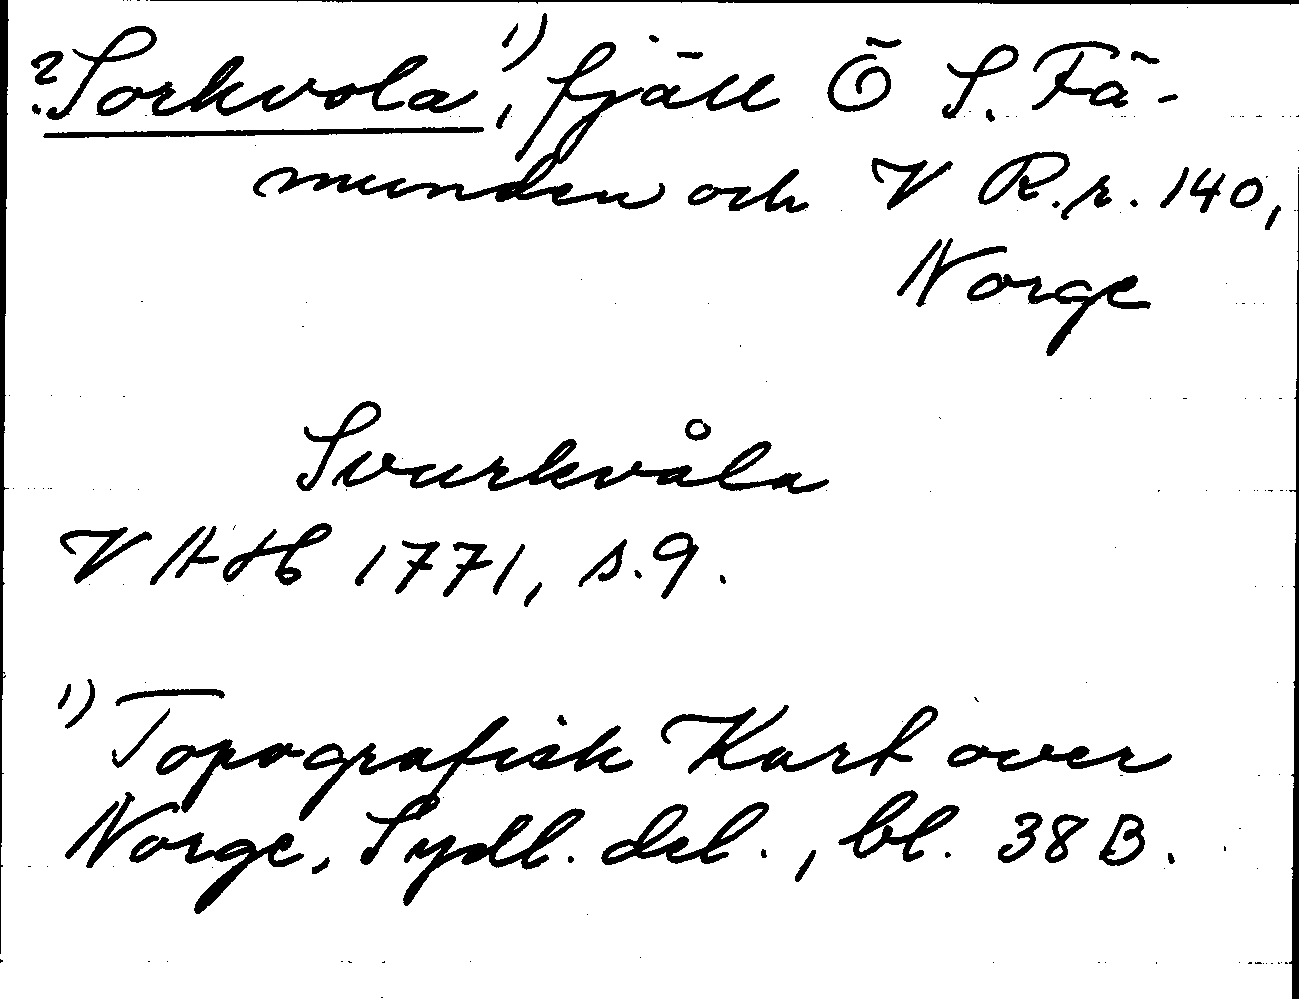 ?Sorkvola,¹⁾ fjäll Ö S. Fä-
munden och V R.r. 140,
Norge
Svurkvåla
VHAH 1771, s. 9.
¹⁾ Topografisk Kart over
Norge, Sydl. del., bl. 38 B.